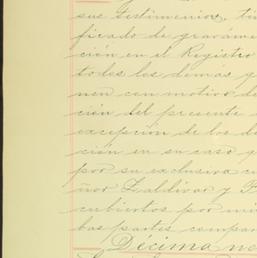 sus testimonios, tim
ficado de graváme
ción en el Registro
todos los demas q
nen con motivo de
ción del presente
excepcion de los de
cion en su caso q
por su exclusiva cu
ñor Zaldivar y F
cubiertos por mi
bas partes compar
Décima no